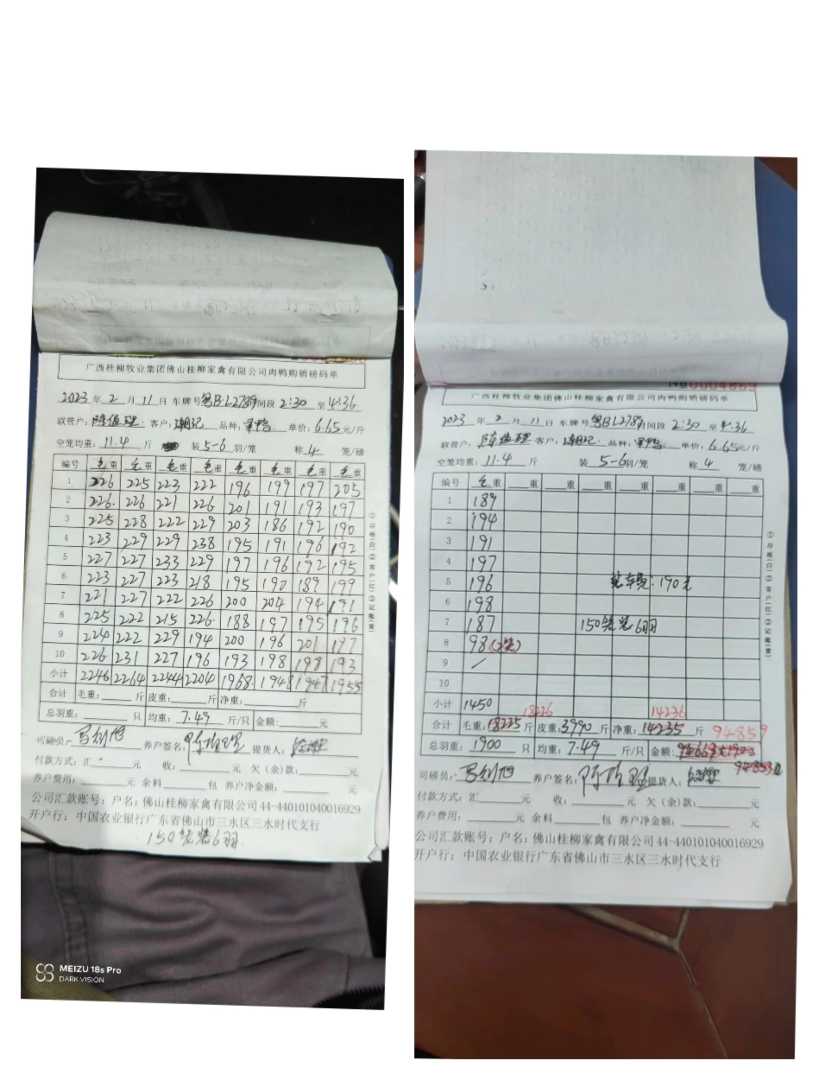 广西桂柳牧业集团佛山桂柳家禽有限公司肉鸭购销磅码单
2023 年 2 月 11 日 车牌号 粤BL2789 时间段 2:30 至 4:36
联营户: 客户: 品种: 单价: 6.65 元/斤
空笼均重: 11.4 斤 装 5-6 羽/笼 称 4 笼/磅
编号 毛重 毛重 毛重 毛重 毛重 毛重 毛重 毛重
1 226 225 223 222 196 199 197 205
2 226 226 221 226 201 191 193 197
3 225 228 222 229 203 186 192 190
4 223 229 229 238 195 191 196 192
5 227 227 233 229 197 196 192 195
6 223 227 223 218 195 197 189 199
7 221 227 222 226 200 204 194 191
8 225 222 215 226 188 197 195 196
9 224 222 229 194 200 196 201 197
10 226 231 227 196 193 198 198 193
小计 2246 2264 2244 2204 1968 1948 1947 1955
合计 毛重: 斤 皮重: 斤 净重: 斤
总羽重: 只 均重: 7.49 斤/只 金额: 元
司磅员: 养户签名: 提货人:
付款方式: 汇 元 收: 元 欠(余)款: 元
养户费用: 元 余料 包 养户净金额: 元
公司汇款账号: 户名: 佛山桂柳家禽有限公司 44-440101040016929
开户行: 中国农业银行广东省佛山市三水区三水时代支行
150笼装6羽
MEIZU 18s Pro
DARK VISION
No 0004889
广西桂柳牧业集团佛山桂柳家禽有限公司肉鸭购销磅码单
2023 年 2 月 11 日 车牌号 粤BL2789 时间段 2:30 至 4:36
联营户: 客户: 品种: 单价: 6.65 元/斤
空笼均重: 11.4 斤 装 5-6 羽/笼 称 4 笼/磅
编号 毛重 重 重 重 重 重 重 重
1 189
2 194
3 191
4 197
5 196 装车费: 190元
6 198
7 187 150笼装6羽
8 98(2笼)
9 /
10
小计 1450
18226 14236
合计 毛重: 18225 斤 皮重: 3990 斤 净重: 14235 斤 94859
总羽重: 1900 只 均重: 7.49 斤/只 金额: 元
司磅员: 养户签名: 提货人:
付款方式: 汇 元 收: 元 欠(余)款: 元
养户费用: 元 余料 包 养户净金额: 元
公司汇款账号: 户名: 佛山桂柳家禽有限公司 44-440101040016929
开户行: 中国农业银行广东省佛山市三水区三水时代支行